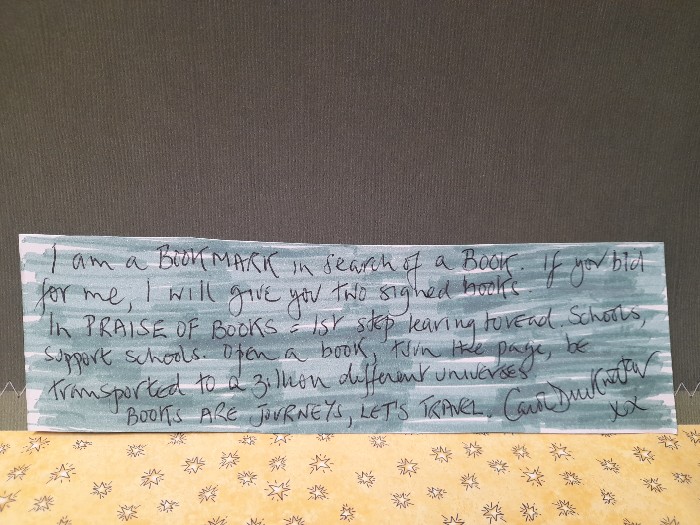 I am a BOOKMARK in search of a BOOK. If you bid
for me, I will give you two signed books.
In PRAISE OF BOOKS = 1st step learing to read. Schools,
support schools. Open a book, turn the page, be
transported to a zillion different universes
BOOKS ARE JOURNEYS, LET'S TRAVEL. Carol Drinkwater
xx